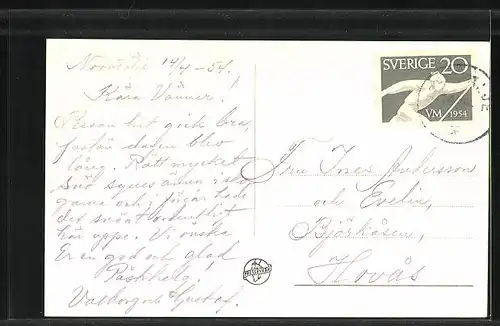 Norrtälje 14/4 -54.
Kära Vänner!
Resan hit gick bra,
fastän dagen blev
lång. Rätt mycket
snö synes ännu i sko-
garna och igår hade
det snöat ordentligt
här uppe. Vi önska
Er en god och glad
Påskhelg!
Valborg och Gustaf.
SVERIGE 20
VM 1954
Fru Ines Andersson
och Evelin,
Björkåsen,
Hovås